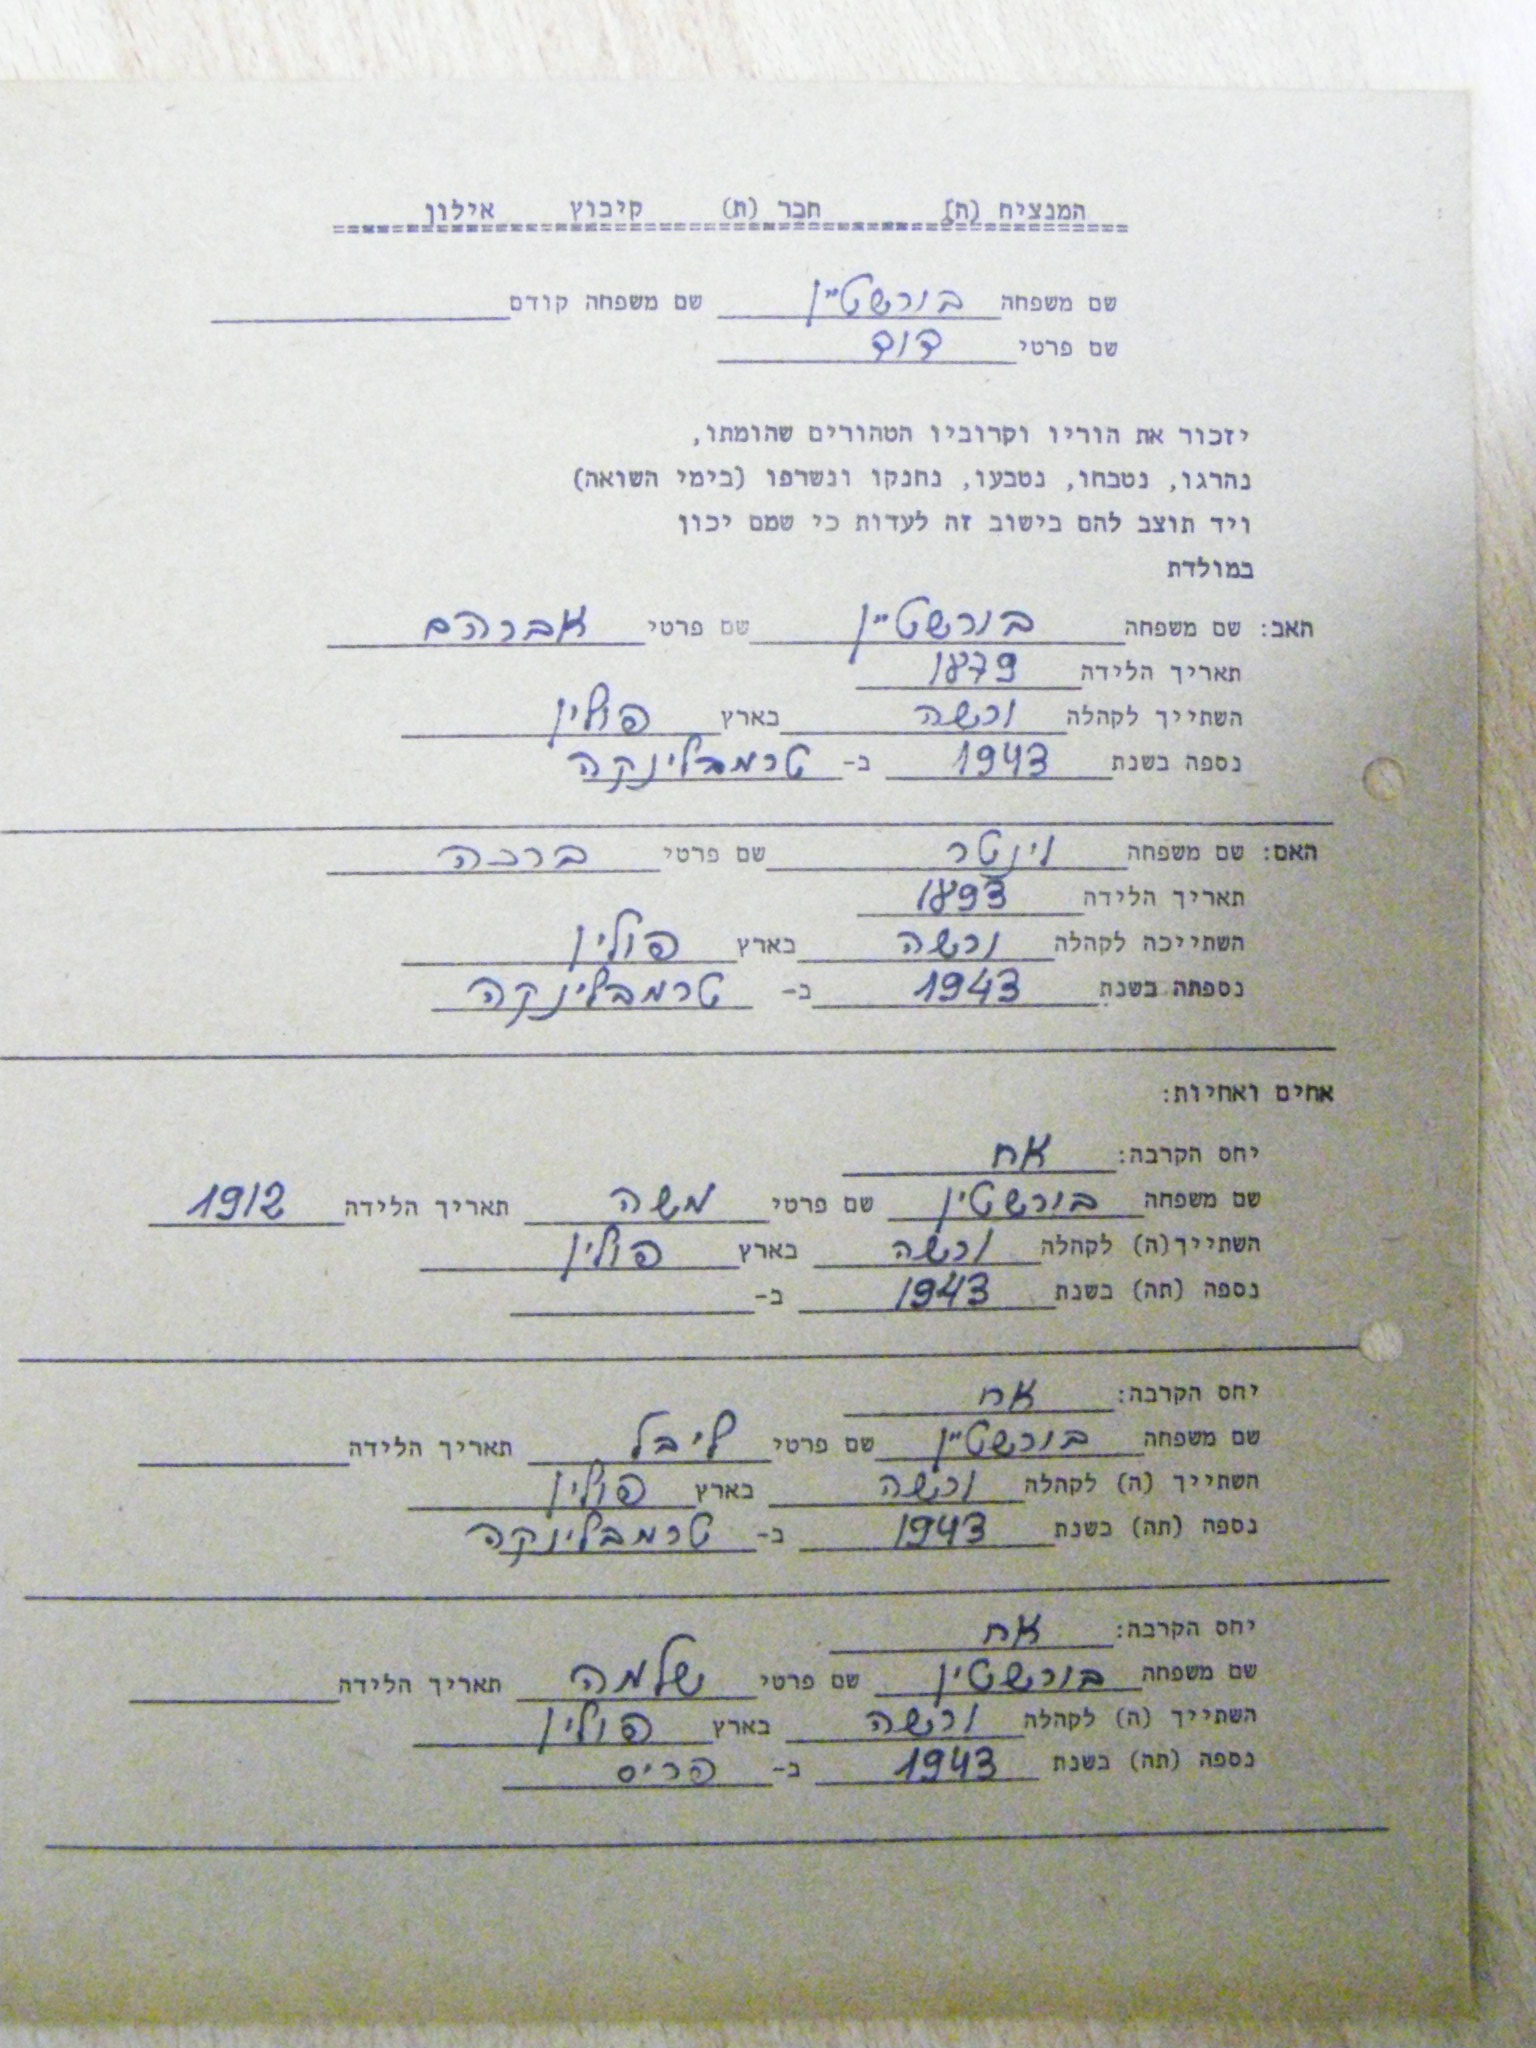 המנציח (ה) חבר (ת) קיבוץ אילון
שם משפחה בורשטיין שם משפחה קודם
שם פרטי דוד
יזכור את הוריו וקרוביו הטהורים שהומתו,
נהרגו, נטבחו, נטבעו, נחנקו ונשרפו (בימי השואה)
ויד תוצב להם בישוב זה לעדות כי שמם יכון
במולדת
האב: שם משפחה בורשטיין שם פרטי אברהם
תאריך הלידה 1879
השתייך לקהלה ורשה בארץ פולין
נספה בשנת 1943 ב- טרמבלינקה
האם: שם משפחה וינטר שם פרטי ברכה
תאריך הלידה 1893
השתייכה לקהלה ורשה בארץ פולין
נספתה בשנת 1943 ב- טרמבלינקה
אחים ואחיות:
יחס הקרבה: אח
שם משפחה בורשטין שם פרטי משה תאריך הלידה 1912
השתייך(ה) לקהלה ורשה בארץ פולין
נספה (תה) בשנת 1943 ב-
יחס הקרבה: אח
שם משפחה בורשטיין שם פרטי ליבל תאריך הלידה
השתייך (ה) לקהלה ורשה בארץ פולין
נספה (תה) בשנת 1943 ב- טרמבלינקה
יחס הקרבה: אח
שם משפחה בורשטין שם פרטי שלמה תאריך הלידה
השתייך (ה) לקהלה ורשה בארץ פולין
נספה (תה) בשנת 1943 ב- פריס